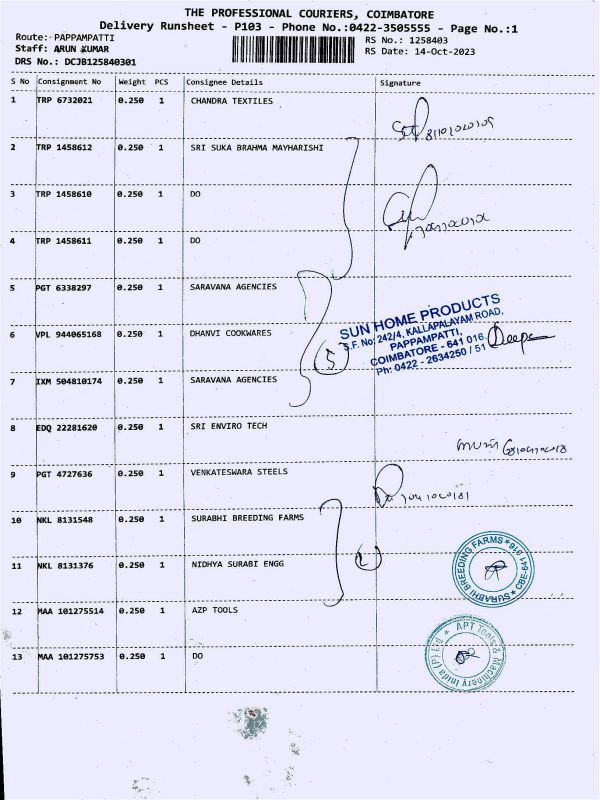 THE PROFESSIONAL COURIERS, COIMBATORE
Delivery Runsheet - P103 - Phone No.:0422-3505555 - Page No.:1
Route: PAPPAMPATTI RS No.: 1258403
Staff: ARUN KUMAR RS Date: 14-Oct-2023
DRS No.: DCJB125840301
S No Consignment No Weight PCS Consignee Details Signature
1 TRP 6732021 0.250 1 CHANDRA TEXTILES
2 TRP 1458612 0.250 1 SRI SUKA BRAHMA MAYHARISHI
3 TRP 1458610 0.250 1 DO
4 TRP 1458611 0.250 1 DO
5 PGT 6338297 0.250 1 SARAVANA AGENCIES
SUN HOME PRODUCTS
S.F. No: 242/4, KALLAPALAYAM ROAD,
PAPPAMPATTI,
COIMBATORE - 641 016.
Ph: 0422 - 2634250 / 51
Deepa
6 VPL 944065168 0.250 1 DHANVI COOKWARES
5
7 IXM 504810174 0.250 1 SARAVANA AGENCIES
8 EDQ 22281620 0.250 1 SRI ENVIRO TECH
9 PGT 4727636 0.250 1 VENKATESWARA STEELS
10 NKL 8131548 0.250 1 SURABHI BREEDING FARMS
11 NKL 8131376 0.250 1 NIDHYA SURABI ENGG
SURABHI BREEDING FARMS * CBE-641 016 *
12 MAA 101275514 0.250 1 AZP TOOLS
13 MAA 101275753 0.250 1 DO
APT Tools & Machinery India (P) Ltd *